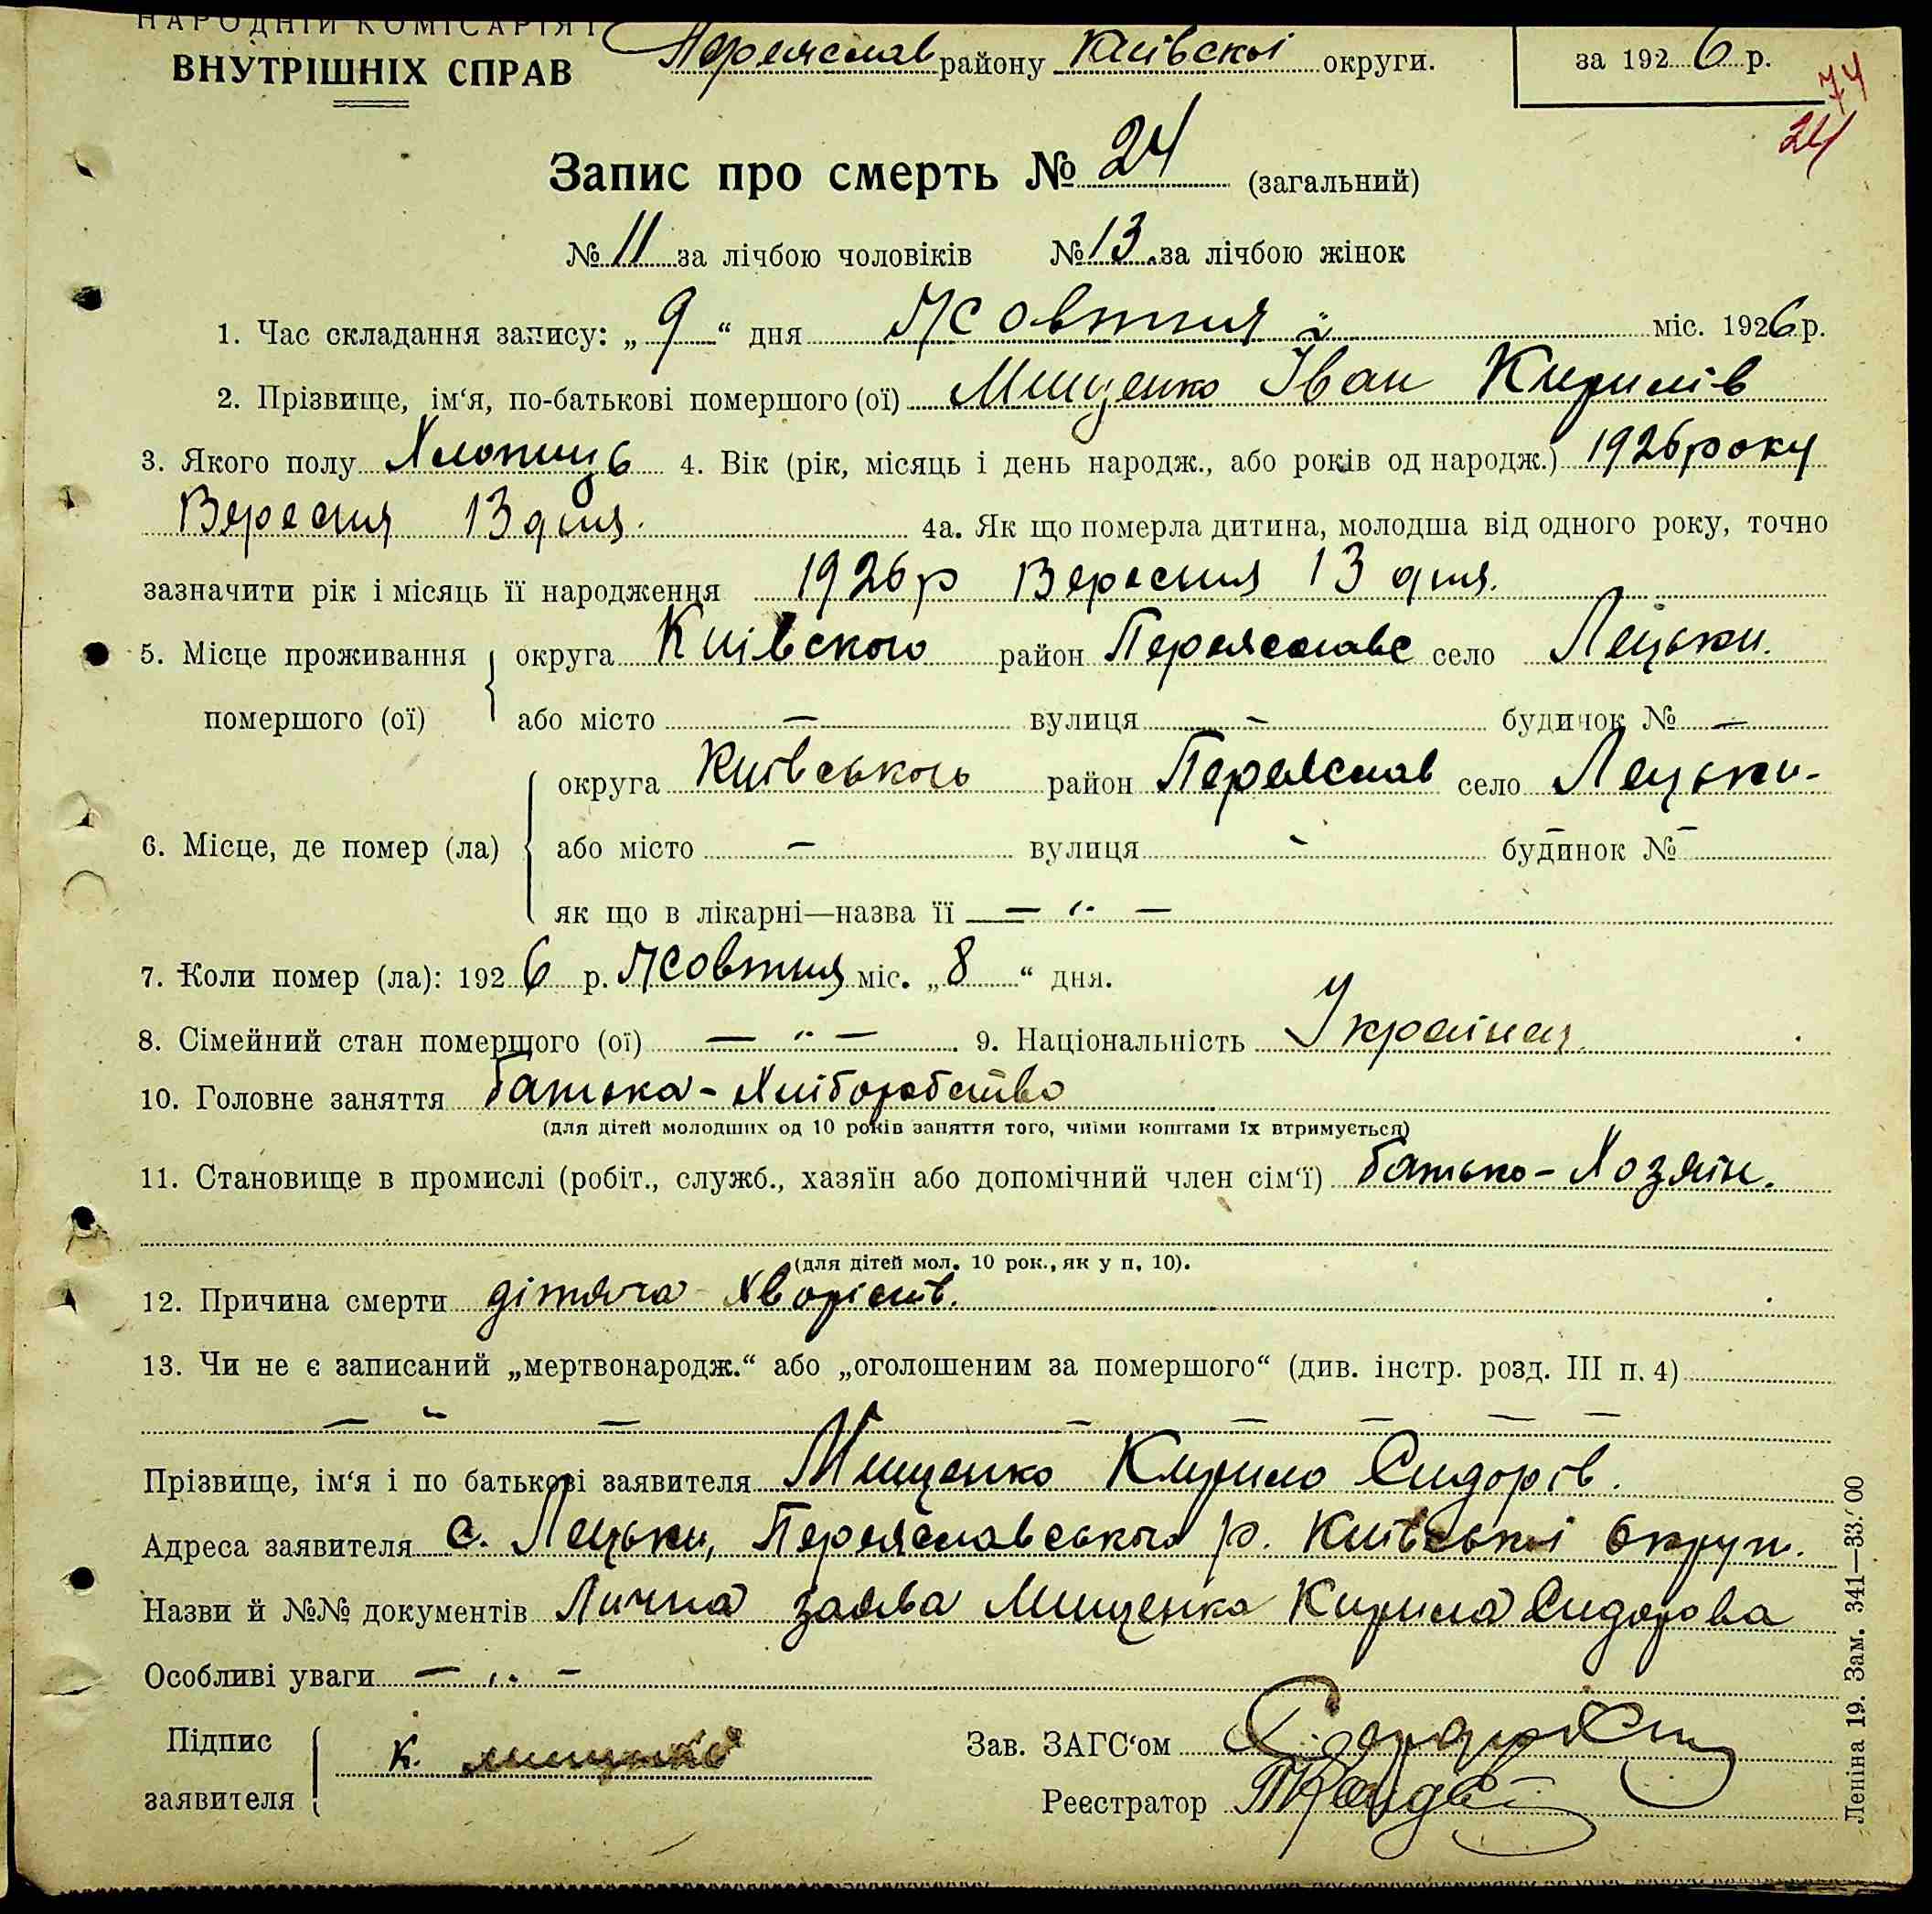 НАРОДНІЙ КОМІСАРІЯТ
ВНУТРІШНІХ СПРАВ
Переяслав району Київскої округи.
за 1926 р.
74
24
Запис про смерть № 24 (загальний)
№ 11 за лічбою чоловіків № 13 за лічбою жінок
1. Час складання запису: „ 9 “ дня Жовтня міс. 1926 р.
2. Прізвище, ім‘я, по-батькові помершого (ої) Мищенко Іван Кирилів
3. Якого полу Хлопиць 4. Вік (рік, місяць і день народж., або років од народж.) 1926 року
Вересня 13 дня. 4а. Як що померла дитина, молодша від одного року, точно
зазначити рік і місяць її народження 1926 р Вересня 13 дня.
5. Місце проживання округа Київского район Переяславс село Лецьки.
помершого (ої) або місто — вулиця — будинок № —
округа Київського район Переяслав село Лецьки-
6. Місце, де помер (ла) або місто — вулиця - будинок № —
як що в лікарні—назва її — „ —
7. Коли помер (ла): 1926 р. Жовтня міс. „ 8 “ дня.
8. Сімейний стан померщого (ої) — „ — 9. Національність Україней
10. Головне заняття батька - Хліборобство
(для дітей молодших од 10 років заняття того, чиїми коштами їх втримується)
11. Становище в промислі (робіт., служб., хазяїн або допомічний член сім‘ї) батько - Хозяін.
(для дітей мол. 10 рок., як у п. 10).
12. Причина смерти дітяча хворість.
13. Чи не є записаний „мертвонародж.“ або „оголошеним за помершого“ (див. інстр. розд. III п. 4)
— „ — — — — — —
Прізвище, ім‘я і по батькові заявителя Мищенко Кирило Сидорів.
Адреса заявителя с. Лецьки, Переяславського р. Київської округи.
Назви й №№ документів Лична заява Мищенка Кирила Сидорова
Особливі уваги — „ —
Підпис заявителя К. мищенко
Зав. ЗАГС‘ом
Реєстратор
Леніна 19. Зам. 341—33.